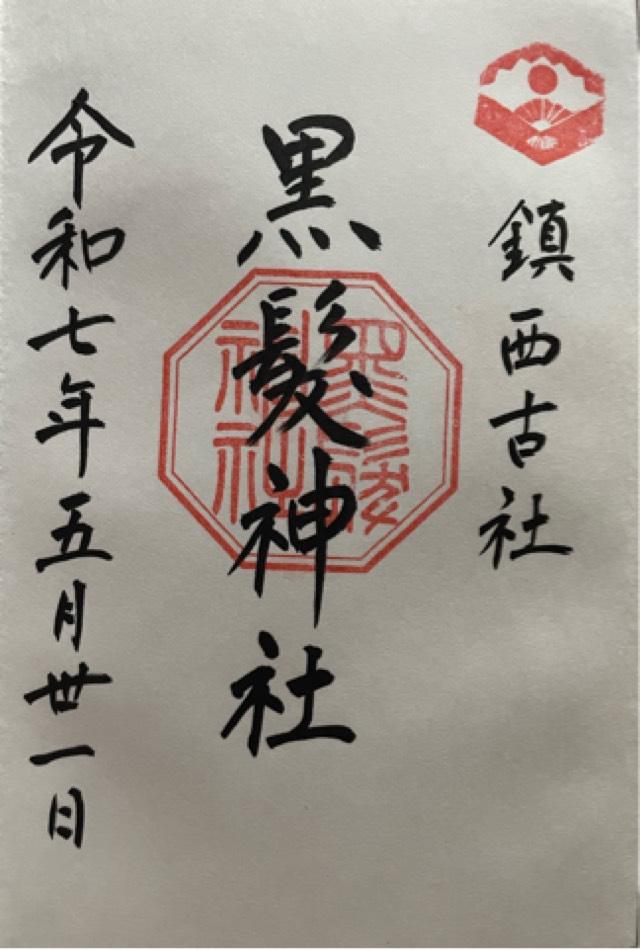 鎮西古社
黒髪神社
黒髪神社
令和七年五月丗一日